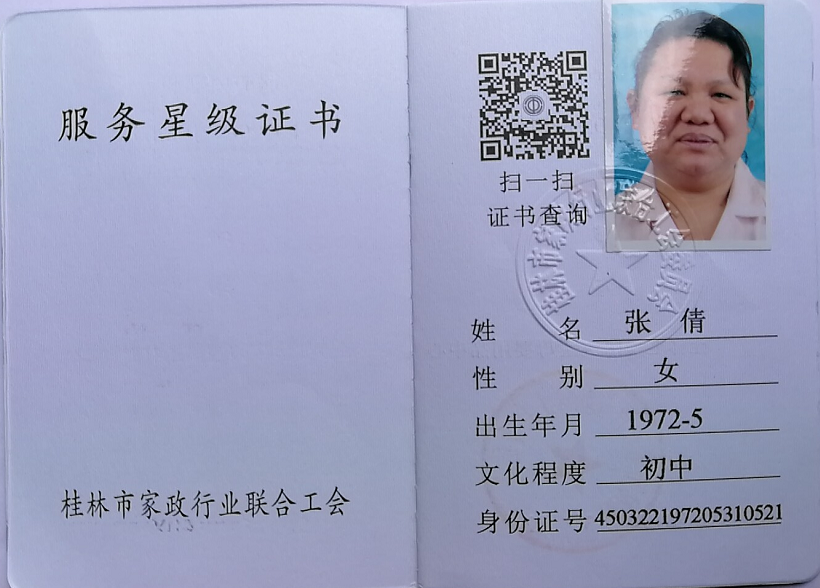 服务星级证书
桂林市家政行业联合工会
扫一扫
证书查询
姓名 张倩
性别 女
出生年月 1972-5
文化程度 初中
身份证号 450322197205310521